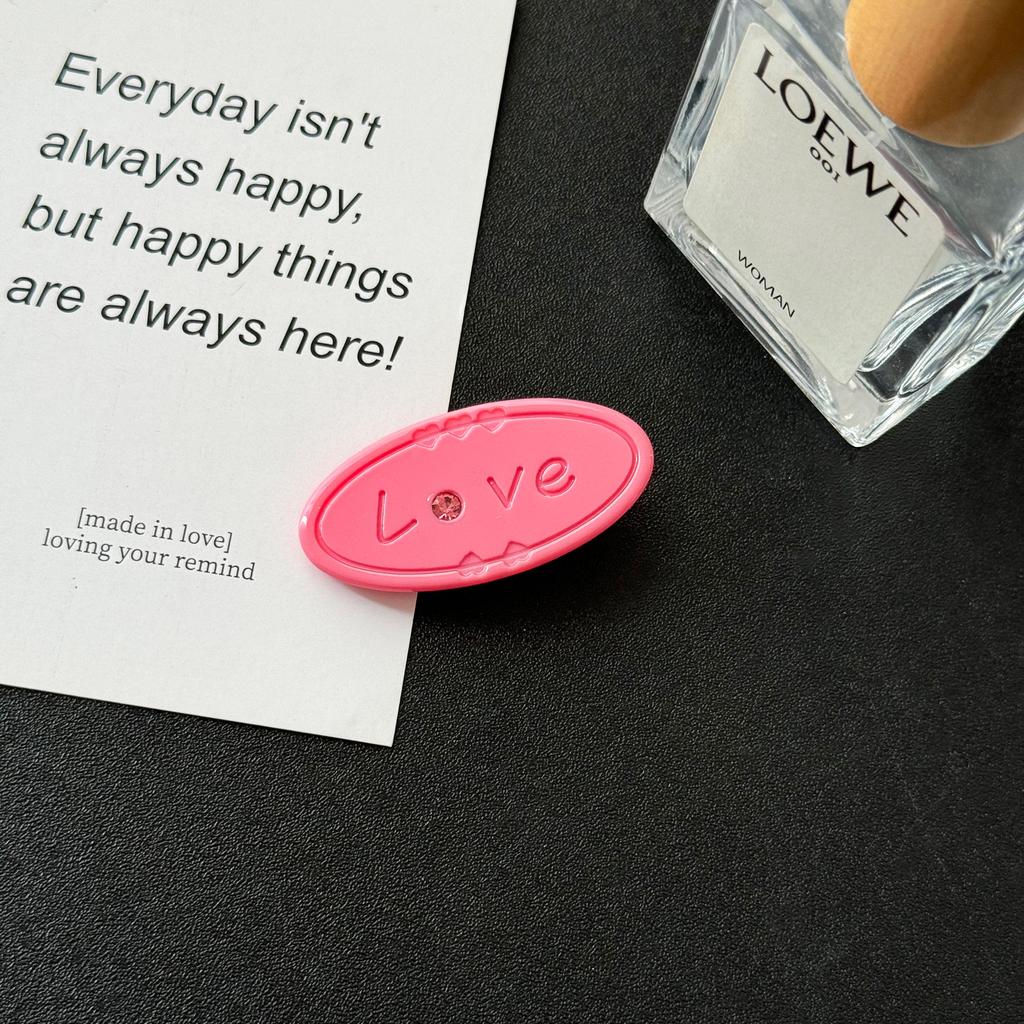 Everyday isn't
always happy,
but happy things
are always here!
[made in love]
loving your remind
Love
LOEWE
001
WOMAN